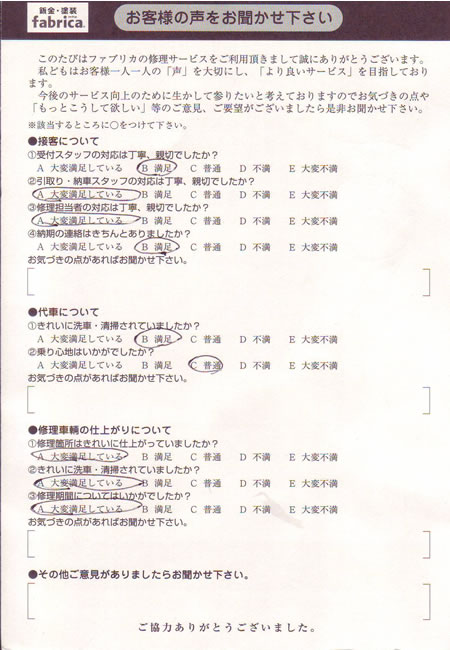 鈑金・塗装
fabrica.
お客様の声をお聞かせ下さい
このたびはファブリカの修理サービスをご利用頂きまして誠にありがとうございます。
私どもはお客様一人一人の「声」を大切にし、「より良いサービス」を目指しており
ます。
今後のサービス向上のために生かして参りたいと考えておりますのでお気づきの点や
「もっとこうして欲しい」等のご意見、ご要望がございましたら是非お聞かせ下さい。
※該当するところに○をつけて下さい。
●接客について
①受付スタッフの対応は丁寧、親切でしたか？
A 大変満足している B 満足 C 普通 D 不満 E 大変不満
②引取り・納車スタッフの対応は丁寧、親切でしたか？
A 大変満足している B 満足 C 普通 D 不満 E 大変不満
③修理担当者の対応は丁寧、親切でしたか？
A 大変満足している B 満足 C 普通 D 不満 E 大変不満
④納期の連絡はきちんとありましたか？
A 大変満足している B 満足 C 普通 D 不満 E 大変不満
お気づきの点があればお聞かせ下さい。
●代車について
①きれいに洗車・清掃されていましたか？
A 大変満足している B 満足 C 普通 D 不満 E 大変不満
②乗り心地はいかがでしたか？
A 大変満足している B 満足 C 普通 D 不満 E 大変不満
お気づきの点があればお聞かせ下さい。
●修理車輌の仕上がりについて
①修理箇所はきれいに仕上がっていましたか？
A 大変満足している B 満足 C 普通 D 不満 E 大変不満
②きれいに洗車・清掃されていましたか？
A 大変満足している B 満足 C 普通 D 不満 E 大変不満
③修理期間についてはいかがでしたか？
A 大変満足している B 満足 C 普通 D 不満 E 大変不満
お気づきの点があればお聞かせ下さい。
●その他ご意見がありましたらお聞かせ下さい。
ご協力ありがとうございました。